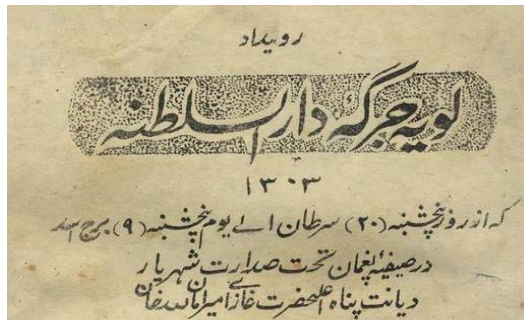 رویداد
لویه جرگهٔ دار السلطنه
۱۳۰۳
که از روز پنجشنبه (۲۰) سرطان الی یوم پنجشنبه (۹) برج اسد
در صیفیهٔ پغمان تحت صدارت شهریار
دیانت پناه اعلیحضرت غازی امیر امان الله خان